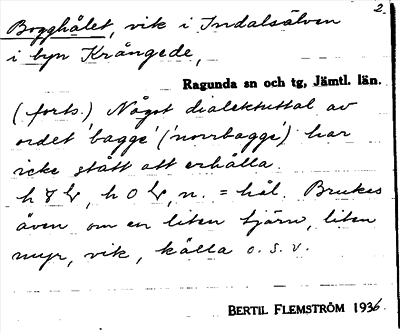 2.
Bogghålet, vik i Indalsälven
i byn Krångede,
Ragunda sn och tg, Jämtl. län.
(forts.) Något dialektuttal av
ordet 'bagge' ('norrbagge') har
icke stått att erhålla.
h, h o, n. = hål. Brukas
även om en liten tjärn, liten
myr, vik, källa o. s. v.
BERTIL FLEMSTRÖM 1936.